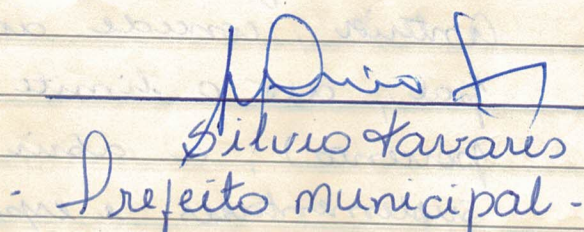 Silvio Tavares
- Prefeito municipal -